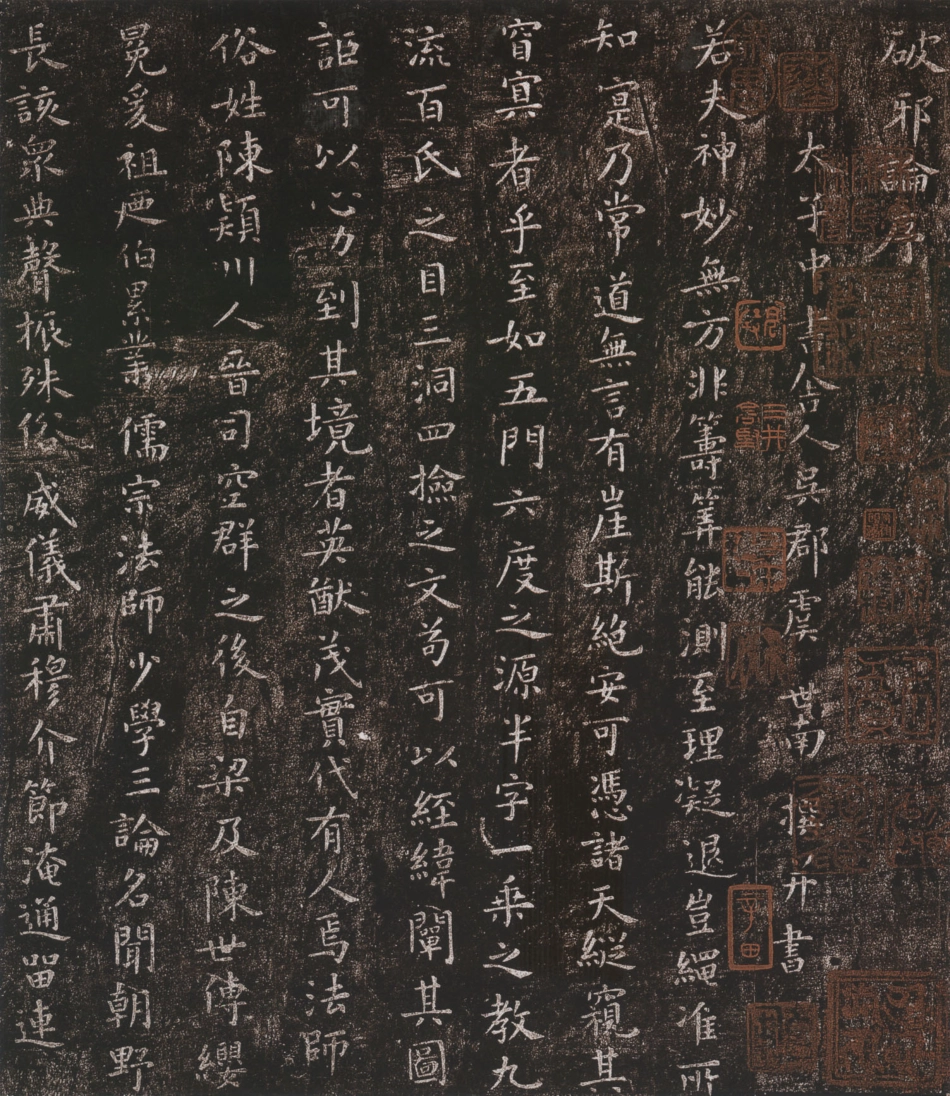 破邪論序
太子中書舍人吳郡虞世南撰并書
若夫神妙無方非籌筭能測至理凝退豈繩准所
知寔乃常道無言有崖斯絶安可憑諸天縱窺其
窅冥者乎至如五門六度之源半字一乗之教九
流百氏之目三洞四撿之文苟可以經緯闡其圖
詎可以心力到其境者英猷茂實代有人焉法師
俗姓陳潁川人晉司空群之後自梁及陳世傳纓
冕爰祖迺伯累業儒宗法師少學三論名聞朝野
長該衆典聲振殊俗威儀肅穆介節淹通留連